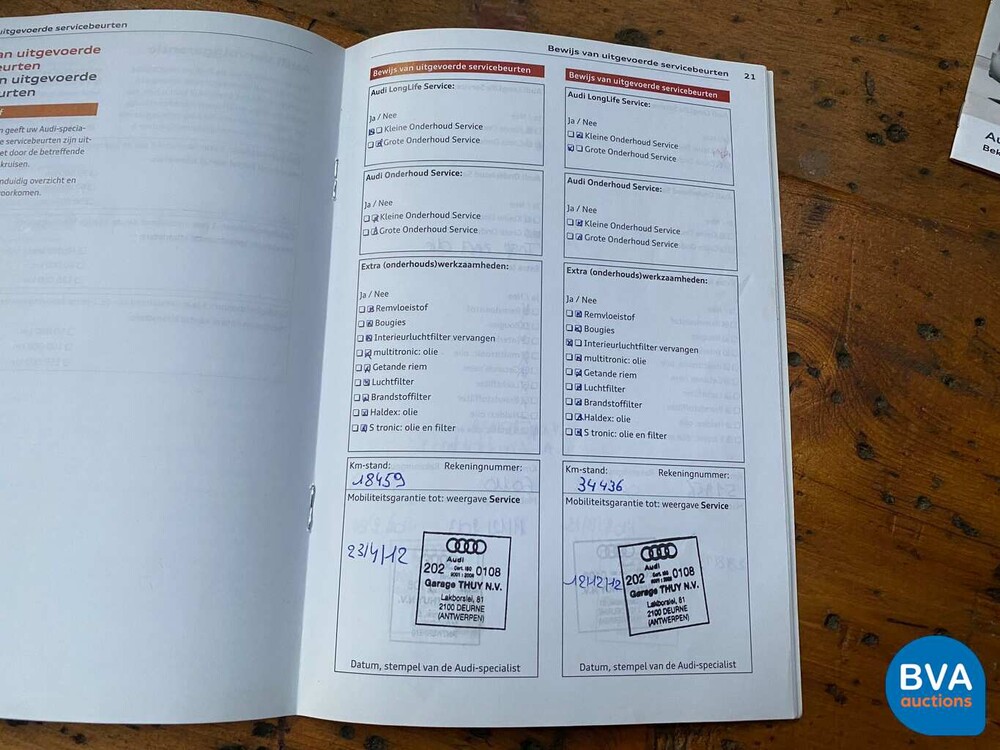 uitgevoerde servicebeurten
an uitgevoerde
eurten
n uitgevoerde
urten
n geeft uw Audi-specia-
e servicebeurten zijn uit-
et door de betreffende
kruisen.
nduidig overzicht en
voorkomen.
Bewijs van uitgevoerde servicebeurten 21
Bewijs van uitgevoerde servicebeurten
Audi LongLife Service:
Ja / Nee
Kleine Onderhoud Service
Grote Onderhoud Service
Audi Onderhoud Service:
Ja / Nee
Kleine Onderhoud Service
Grote Onderhoud Service
Extra (onderhouds)werkzaamheden:
Ja / Nee
Remvloeistof
Bougies
Interieurluchtfilter vervangen
multitronic: olie
Getande riem
Luchtfilter
Brandstoffilter
Haldex: olie
S tronic: olie en filter
Km-stand: Rekeningnummer:
18459
Mobiliteitsgarantie tot: weergave Service
23/4/12
Audi
202 Cert. ISO 0108
9001 : 2008
Garage THUY N.V.
Lakborslei, 81
2100 DEURNE
(ANTWERPEN)
Datum, stempel van de Audi-specialist
Bewijs van uitgevoerde servicebeurten
Audi LongLife Service:
Ja / Nee
Kleine Onderhoud Service
Grote Onderhoud Service
Audi Onderhoud Service:
Ja / Nee
Kleine Onderhoud Service
Grote Onderhoud Service
Extra (onderhouds)werkzaamheden:
Ja / Nee
Remvloeistof
Bougies
Interieurluchtfilter vervangen
multitronic: olie
Getande riem
Luchtfilter
Brandstoffilter
Haldex: olie
S tronic: olie en filter
Km-stand: Rekeningnummer:
34436
Mobiliteitsgarantie tot: weergave Service
12/12/12
Audi
202 Cert. ISO 0108
9001 : 2008
Garage THUY N.V.
Lakborslei, 81
2100 DEURNE
(ANTWERPEN)
Datum, stempel van de Audi-specialist
Au
Bek
BVA
auctions